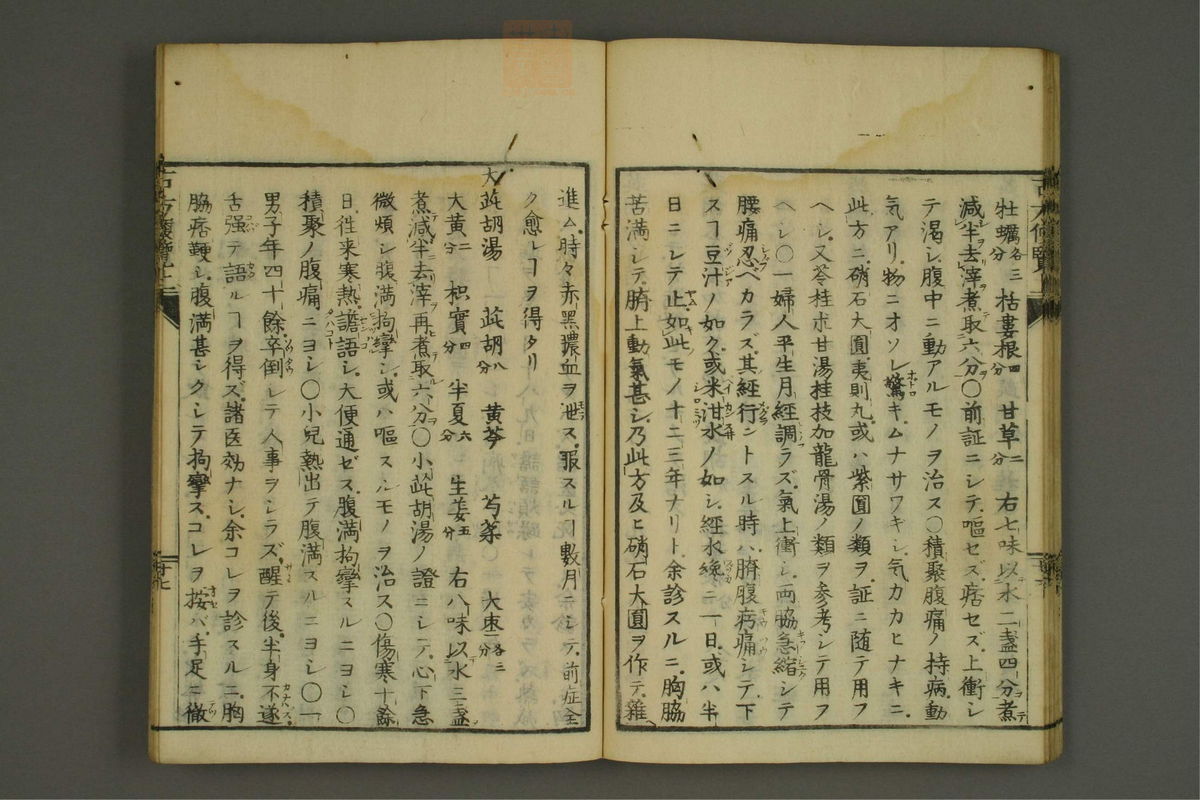 牡蠣各三分 枯婁根四分 甘草二分 右七味以水二盞四分煮
減半去滓煮取六分〇前証ニシテ嘔セズ痞セズ上衝シ
テ渇シ腹中ニ動アルモノヲ治ス〇積聚腹痛ノ持病動
気アリ物ニオソレ驚キムナサワキシ気カカヒナキニ
此方ニ硝石大圓夷則丸或ハ紫圓ノ類ヲ証ニ随テ用フ
ヘシ又苓桂朮甘湯桂枝加龍骨湯ノ類ヲ参考シテ用フ
ヘシ〇一婦人平生月經調ラズ氣上衝シ両脇急縮シテ
腰痛忍ベカラズ其經行ントスル時ハ臍腹㽲痛シテ下
スヿ豆汁ノ如ク或米泔水ノ如シ經水纔ニ一日或ハ半
日ニシテ止如此モノ十二三年ナリト余診スルニ胸脇
苦満シテ臍上動氣甚シ乃此方及ヒ硝石大圓ヲ作テ雜
進ム時々赤黒膿血ヲ泄ス服スルヿ數月ニシテ前症全
ク愈ルヿヲ得タリ
大茈胡湯 茈胡八分 黄芩 芍薬 大枣各三分
大黄二分 枳實四分 半夏六分 生姜五分 右八味以水三盞
煮減半去滓再煮取六分〇小茈胡湯ノ證ニシテ心下急
微煩シ腹満拘攣シ或ハ嘔スルモノヲ治ス〇傷寒十餘
日往来寒熱譫語シ大便通ゼス腹満拘攣スルニヨシ〇
積聚ノ腹痛ニヨシ〇小兒熱出テ腹満スルニヨシ〇一
男子年四十餘卒倒シテ人事ヲシラズ醒テ後半身不遂
舌强テ語ルヿヲ得ズ諸医効ナシ余コレヲ診スルニ胸
脇痞鞕シ腹満甚シクシテ拘攣スコレヲ按バ手足ニ徹